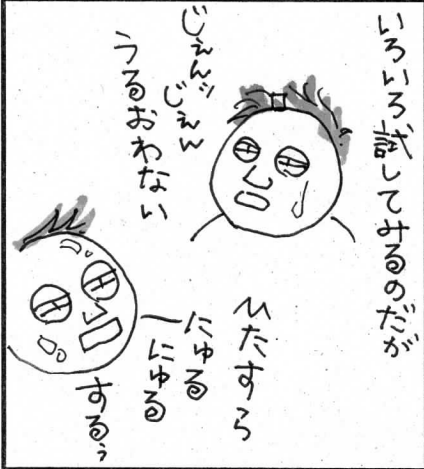 いろいろ試してみるのだが
じぇんッ
じぇん
うるおわない
ひたすら
にゅる
にゅる
するぅ